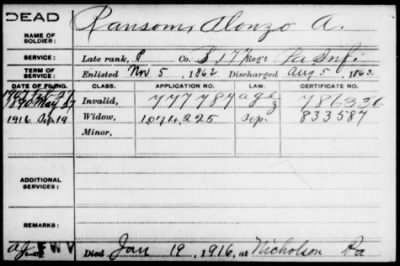 DEAD
NAME OF SOLDIER: Ransom, Alonzo A.
SERVICE: Late rank, P Co. 177 Reg't Pa Inf.
TERM OF SERVICE: Enlisted Nov 5, 1862 Discharged Aug 5, 1863
DATE OF FILING. CLASS. APPLICATION NO. LAW. CERTIFICATE NO.
1890 May 27 Invalid, 777787 786336
1916 Widow, 1074225 833587
Minor,
ADDITIONAL SERVICES:
REMARKS:
Died Jan 19, 1916, at Nicholson Pa